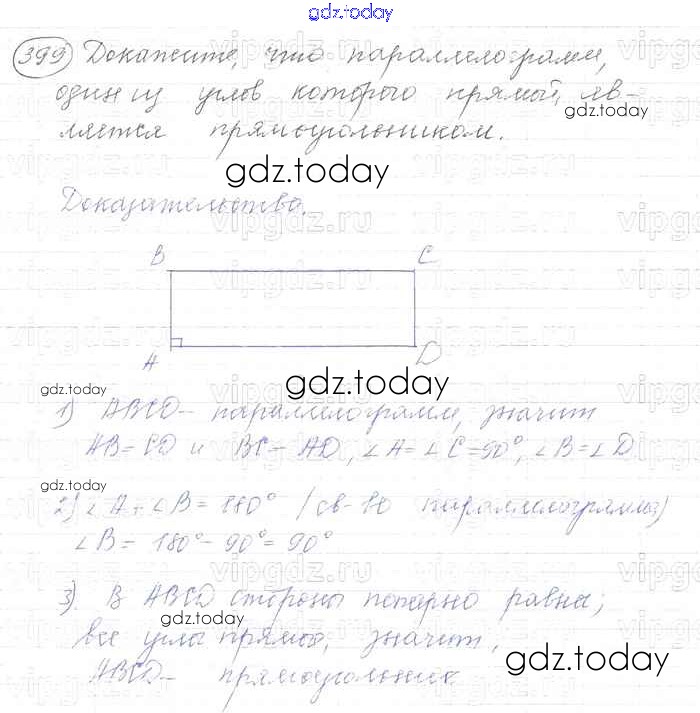 gdz.today
399 Докажите, что параллелограмм,
один из углов которого прямой, яв-
gdz.today
ляется прямоугольником.
gdz.today
Доказательство.
B C
A D
gdz.today
gdz.today
1) ABCD - параллелограмм, значит
AB = CD и BC = AD, ∠A = ∠C = 90°, ∠B = ∠D.
gdz.today
2) ∠A + ∠B = 180° /св-во параллелограмма)
∠B = 180° - 90° = 90°
3). В ABCD стороны попарно равны,
gdz.today
все углы прямые, значит,
gdz.today
ABCD - прямоугольник